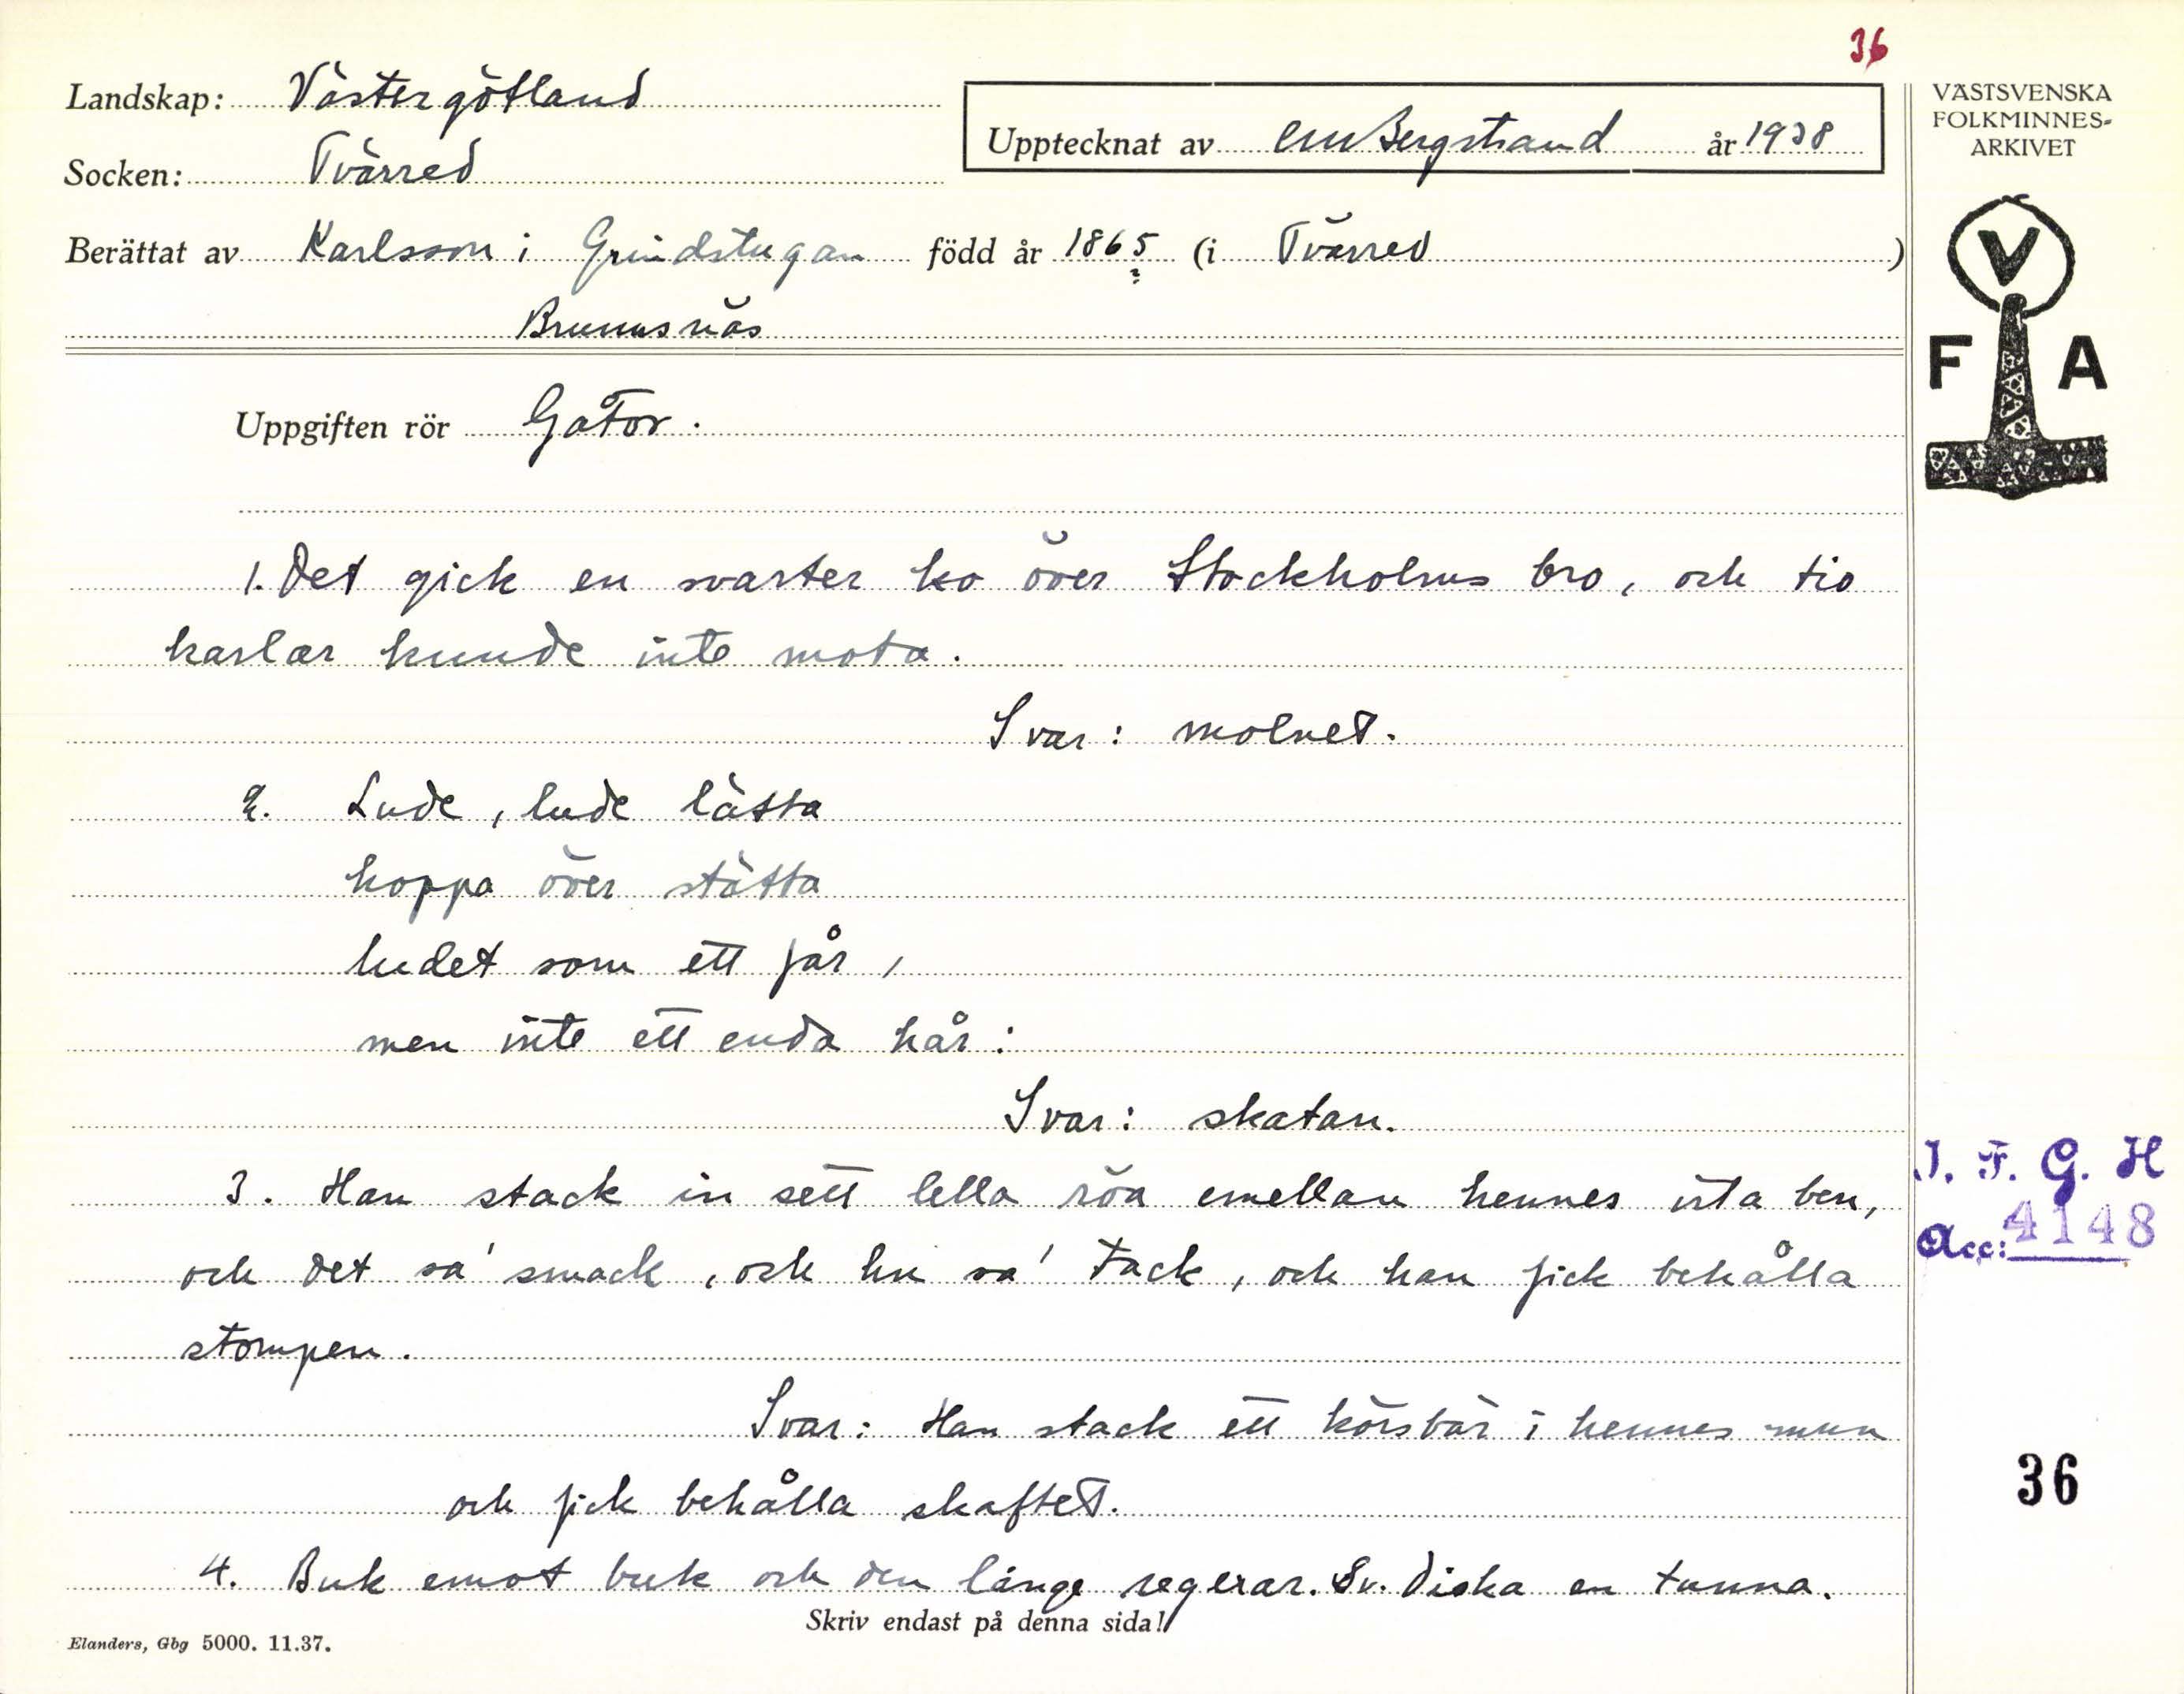 36
Landskap: Västergötland
Socken: Tvärred
Upptecknat av CM Bergstrand år 1938
VÄSTSVENSKA
FOLKMINNES-
ARKIVET
Berättat av Karlsson i Grindstugan född år 1865 (i Tvärred)
?
Brunnsnäs
V
F A
Uppgiften rör Gåtor.
1. Det gick en svarter ko över Stockholms bro, och tio
karlar kunde inte mota.
Svar: molnet.
2. Lude, lude lätta
hoppa över stätta
ludet som ett får,
men inte ett enda hår:
Svar: skatan.
3. Han stack in sett lella röa emellan hennes vita ben,
och det sa' smack, och hu sa' tack, och han fick behålla
stompen.
Svar: Han stack ett körsbär i hennes mun
och fick behålla skaftet.
4. Buk emot buk och den länge regerar. Sv. Diska en tunna.
I. F. G. H
Acc: 4148
36
Skriv endast på denna sida!
Elanders, Gbg 5000. 11.37.